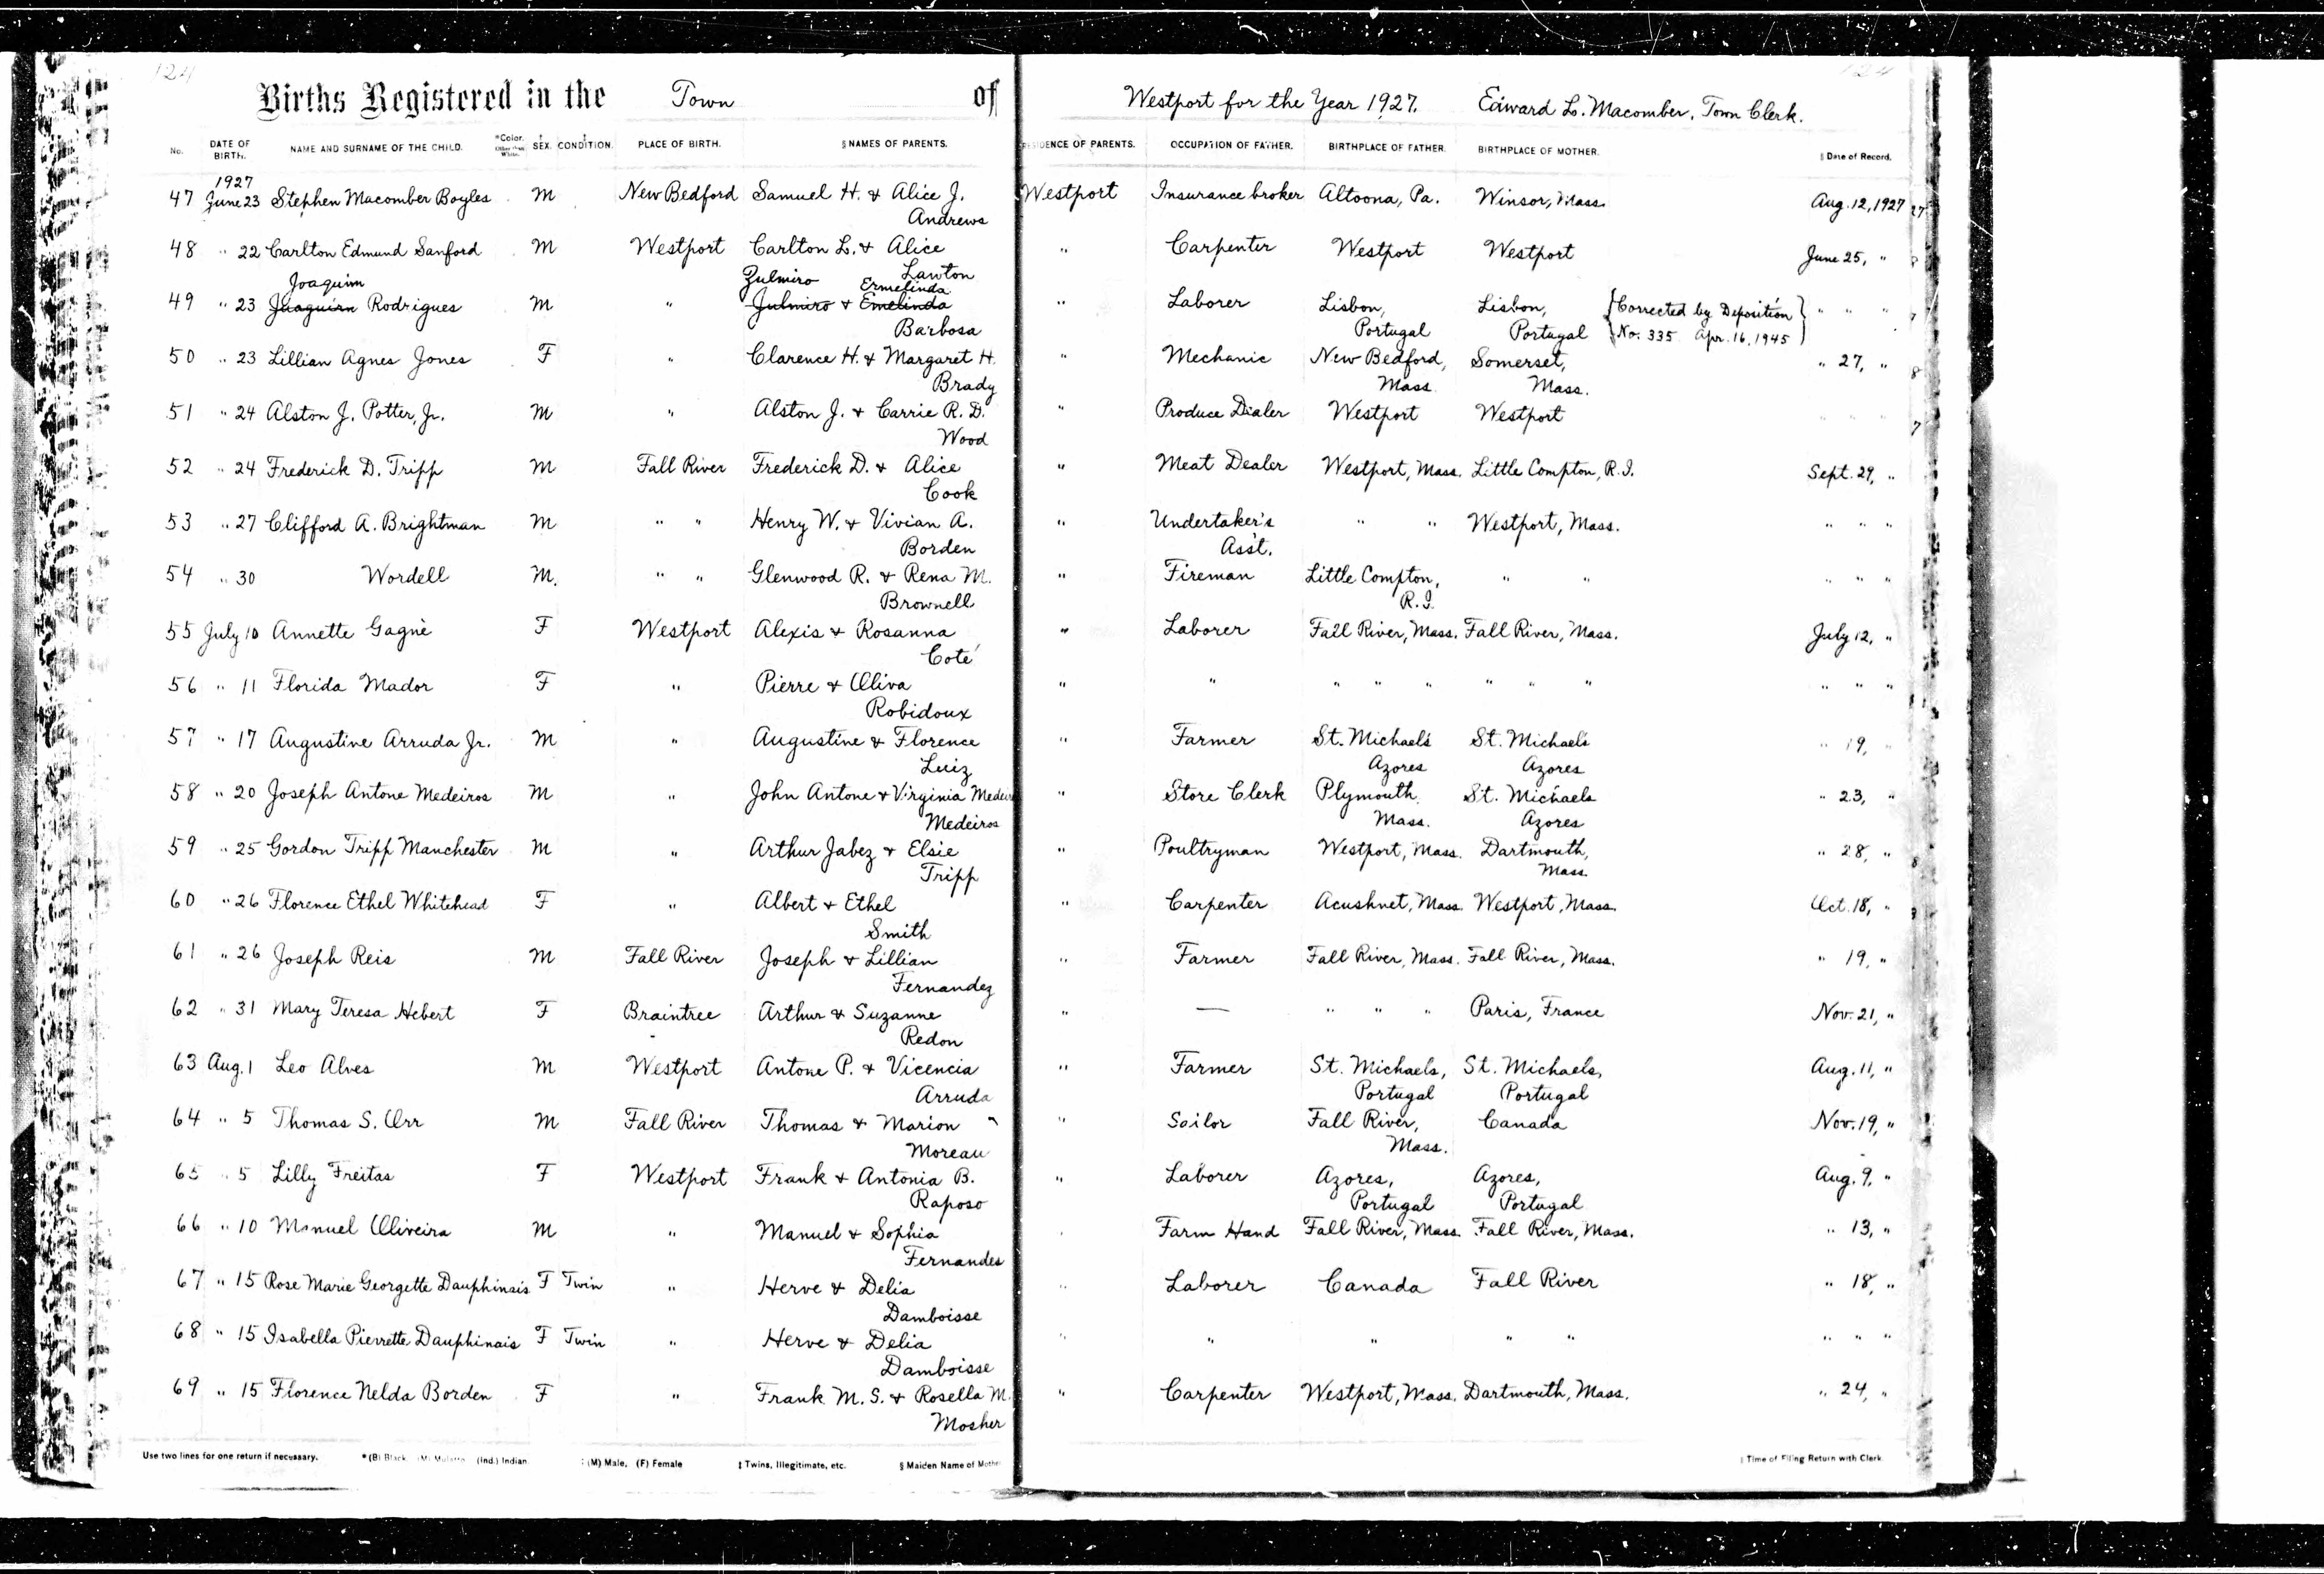 124
Births Registered in the Town of Westport for the Year 1927. Edward L. Macomber, Town Clerk.
No. DATE OF BIRTH. NAME AND SURNAME OF THE CHILD. *Color. Other than White. ‡ SEX. ‡ CONDITION. PLACE OF BIRTH. § NAMES OF PARENTS. RESIDENCE OF PARENTS. OCCUPATION OF FATHER. BIRTHPLACE OF FATHER. BIRTHPLACE OF MOTHER. ‖ Date of Record.
1927
47 June 23 Stephen Macomber Boyles M New Bedford Samuel H. & Alice J. Westport Insurance broker Altoona, Pa. Winsor, Mass. Aug. 12, 1927
Andrews
48 " 22 Carlton Edmund Sanford M Westport Carlton L. & Alice " Carpenter Westport Westport June 25, "
Lawton
Joaquim Zulmiro Ermelinda
49 " 23 Juaquirn Rodrigues M " Julmiro & Emelinda " Laborer Lisbon, Lisbon, {Corrected by Deposition} " " "
Barbosa Portugal Portugal {No. 335 Apr. 16, 1945}
50 " 23 Lillian Agnes Jones F " Clarence H. & Margaret H. " Mechanic New Bedford, Somerset, " 27, "
Brady Mass. Mass.
51 " 24 Alston J. Potter, Jr. M " Alston J. & Carrie R. D. " Produce Dealer Westport Westport " " "
Wood
52 " 24 Frederick D. Tripp M Fall River Frederick D. & Alice " Meat Dealer Westport, Mass. Little Compton, R.I. Sept. 29, "
Cook
53 " 27 Clifford A. Brightman M " " Henry W. & Vivian A. " Undertaker's " " Westport, Mass. " " "
Borden Ass't.
54 " 30 Wordell M. " " Glenwood R. & Rena M. " Fireman Little Compton, " " " " "
Brownell R.I.
55 July 10 Annette Gagnè F Westport Alexis & Rosanna " Laborer Fall River, Mass. Fall River, Mass. July 12, "
Coté
56 " 11 Florida Mador F " Pierre & Oliva " " " " " " " " " " "
Robidoux
57 " 17 Augustine Arruda Jr. M " Augustine & Florence " Farmer St. Michael's St. Michael's " 19, "
Luiz Azores Azores
58 " 20 Joseph Antone Medeiros M " John Antone & Virginia " Store Clerk Plymouth St. Michaels " 23, "
Medeiros Mass. Azores
59 " 25 Gordon Tripp Manchester M " Arthur Jabez & Elsie " Poultryman Westport, Mass. Dartmouth, " 28, "
Tripp Mass.
60 " 26 Florence Ethel Whitehead F " Albert & Ethel " Carpenter Acushnet, Mass. Westport, Mass. Oct. 18, "
Smith
61 " 26 Joseph Reis M Fall River Joseph & Lillian " Farmer Fall River, Mass. Fall River, Mass. " 19, "
Fernandez
62 " 31 Mary Teresa Hebert F Braintree Arthur & Suzanne " — " " " Paris, France Nov. 21, "
Redon
63 Aug. 1 Leo Alves M Westport Antone P. & Vicencia " Farmer St. Michaels, St. Michaels, Aug. 11, "
Arruda Portugal Portugal
64 " 5 Thomas S. Orr M Fall River Thomas & Marion " Sailor Fall River, Canada Nov. 19, "
Moreau Mass.
65 " 5 Lilly Freitas F Westport Frank & Antonia B. " Laborer Azores, Azores, Aug. 9, "
Raposo Portugal Portugal
66 " 10 Manuel Oliveira M " Manuel & Sophia " Farm Hand Fall River, Mass. Fall River, Mass. " 13, "
Fernandes
67 " 15 Rose Marie Georgette Dauphinais F Twin " Herve & Delia " Laborer Canada Fall River " 18, "
Damboisse
68 " 15 Isabella Pierrette Dauphinais F Twin " Herve & Delia " " " " " " " "
Damboisse
69 " 15 Florence Nelda Borden F " Frank M. S. & Rosella M. " Carpenter Westport, Mass. Dartmouth, Mass. " 24, "
Mosher
Use two lines for one return if necessary. * (B) Black (M) Mulatto (Ind.) Indian. (M) Male, (F) Female ‡ Twins, Illegitimate, etc. § Maiden Name of ‖ Time of Filing Return with Clerk.